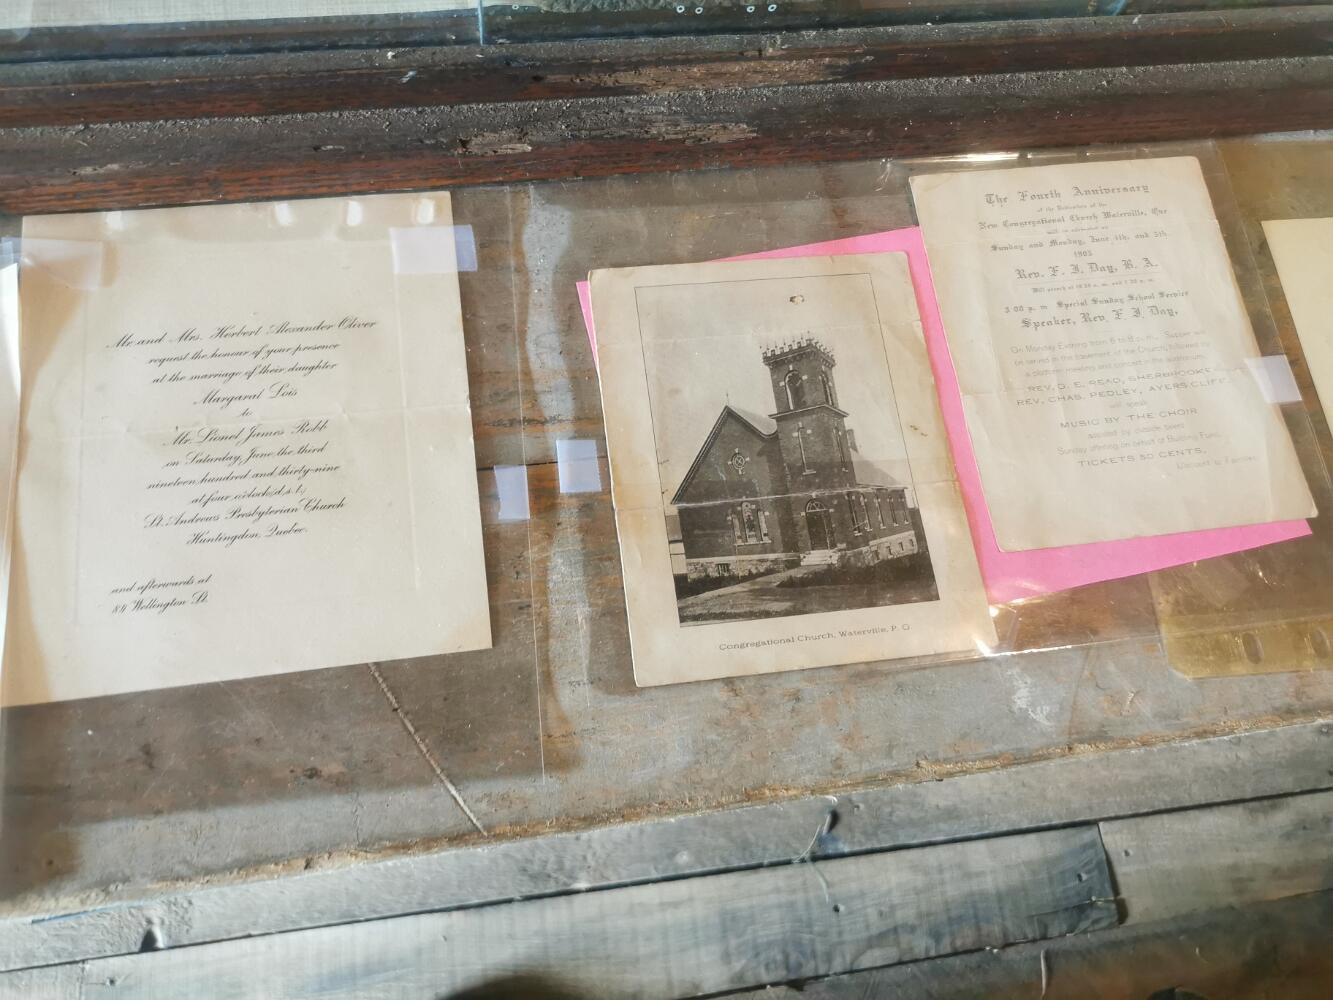 Mr. and Mrs. Herbert Alexander Oliver
request the honour of your presence
at the marriage of their daughter
Margaret Lois
to
Mr. Lionel James Robb
on Saturday, June the third
nineteen hundred and thirty-nine
at four o'clock (d.s.t.)
St. Andrews Presbyterian Church
Huntingdon, Quebec.
and afterwards at
84 Wellington St.
Congregational Church, Waterville, P. Q
The Fourth Anniversary
of the Dedication of the
New Congregational Church Waterville, Que
will be celebrated on
Sunday and Monday, June 4th, and 5th
1905
Rev. F. J. Day, B. A.
Will preach at 10.30 a. m. and 7.30 p. m
3 00 p. m Special Sunday School Service
Speaker, Rev. F. J. Day,
On Monday Evening from 6 to 8 p. m., Supper will
be served in the basement of the Church, followed by
a platform meeting and concert in the auditorium.
REV. D. E. READ, SHERBROOKE
REV. CHAS. PEDLEY, AYERS CLIFF,
will speak
MUSIC BY THE CHOIR
assisted by outside talent
Sunday offering on behalf of Building Fund.
TICKETS 50 CENTS.
Discount to Families.